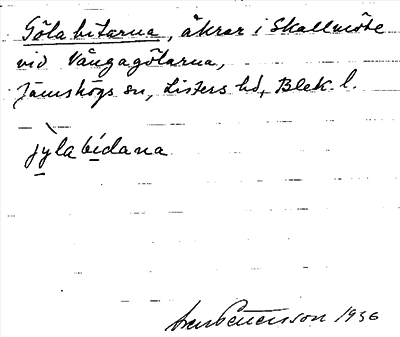 Göla bitarna, åkrar i Skallmöte
vid Vångagölarna,
Jämshögs sn, Listers hd, Blek. l.
jỳ̲la bí̲dana
Pettersson 1936